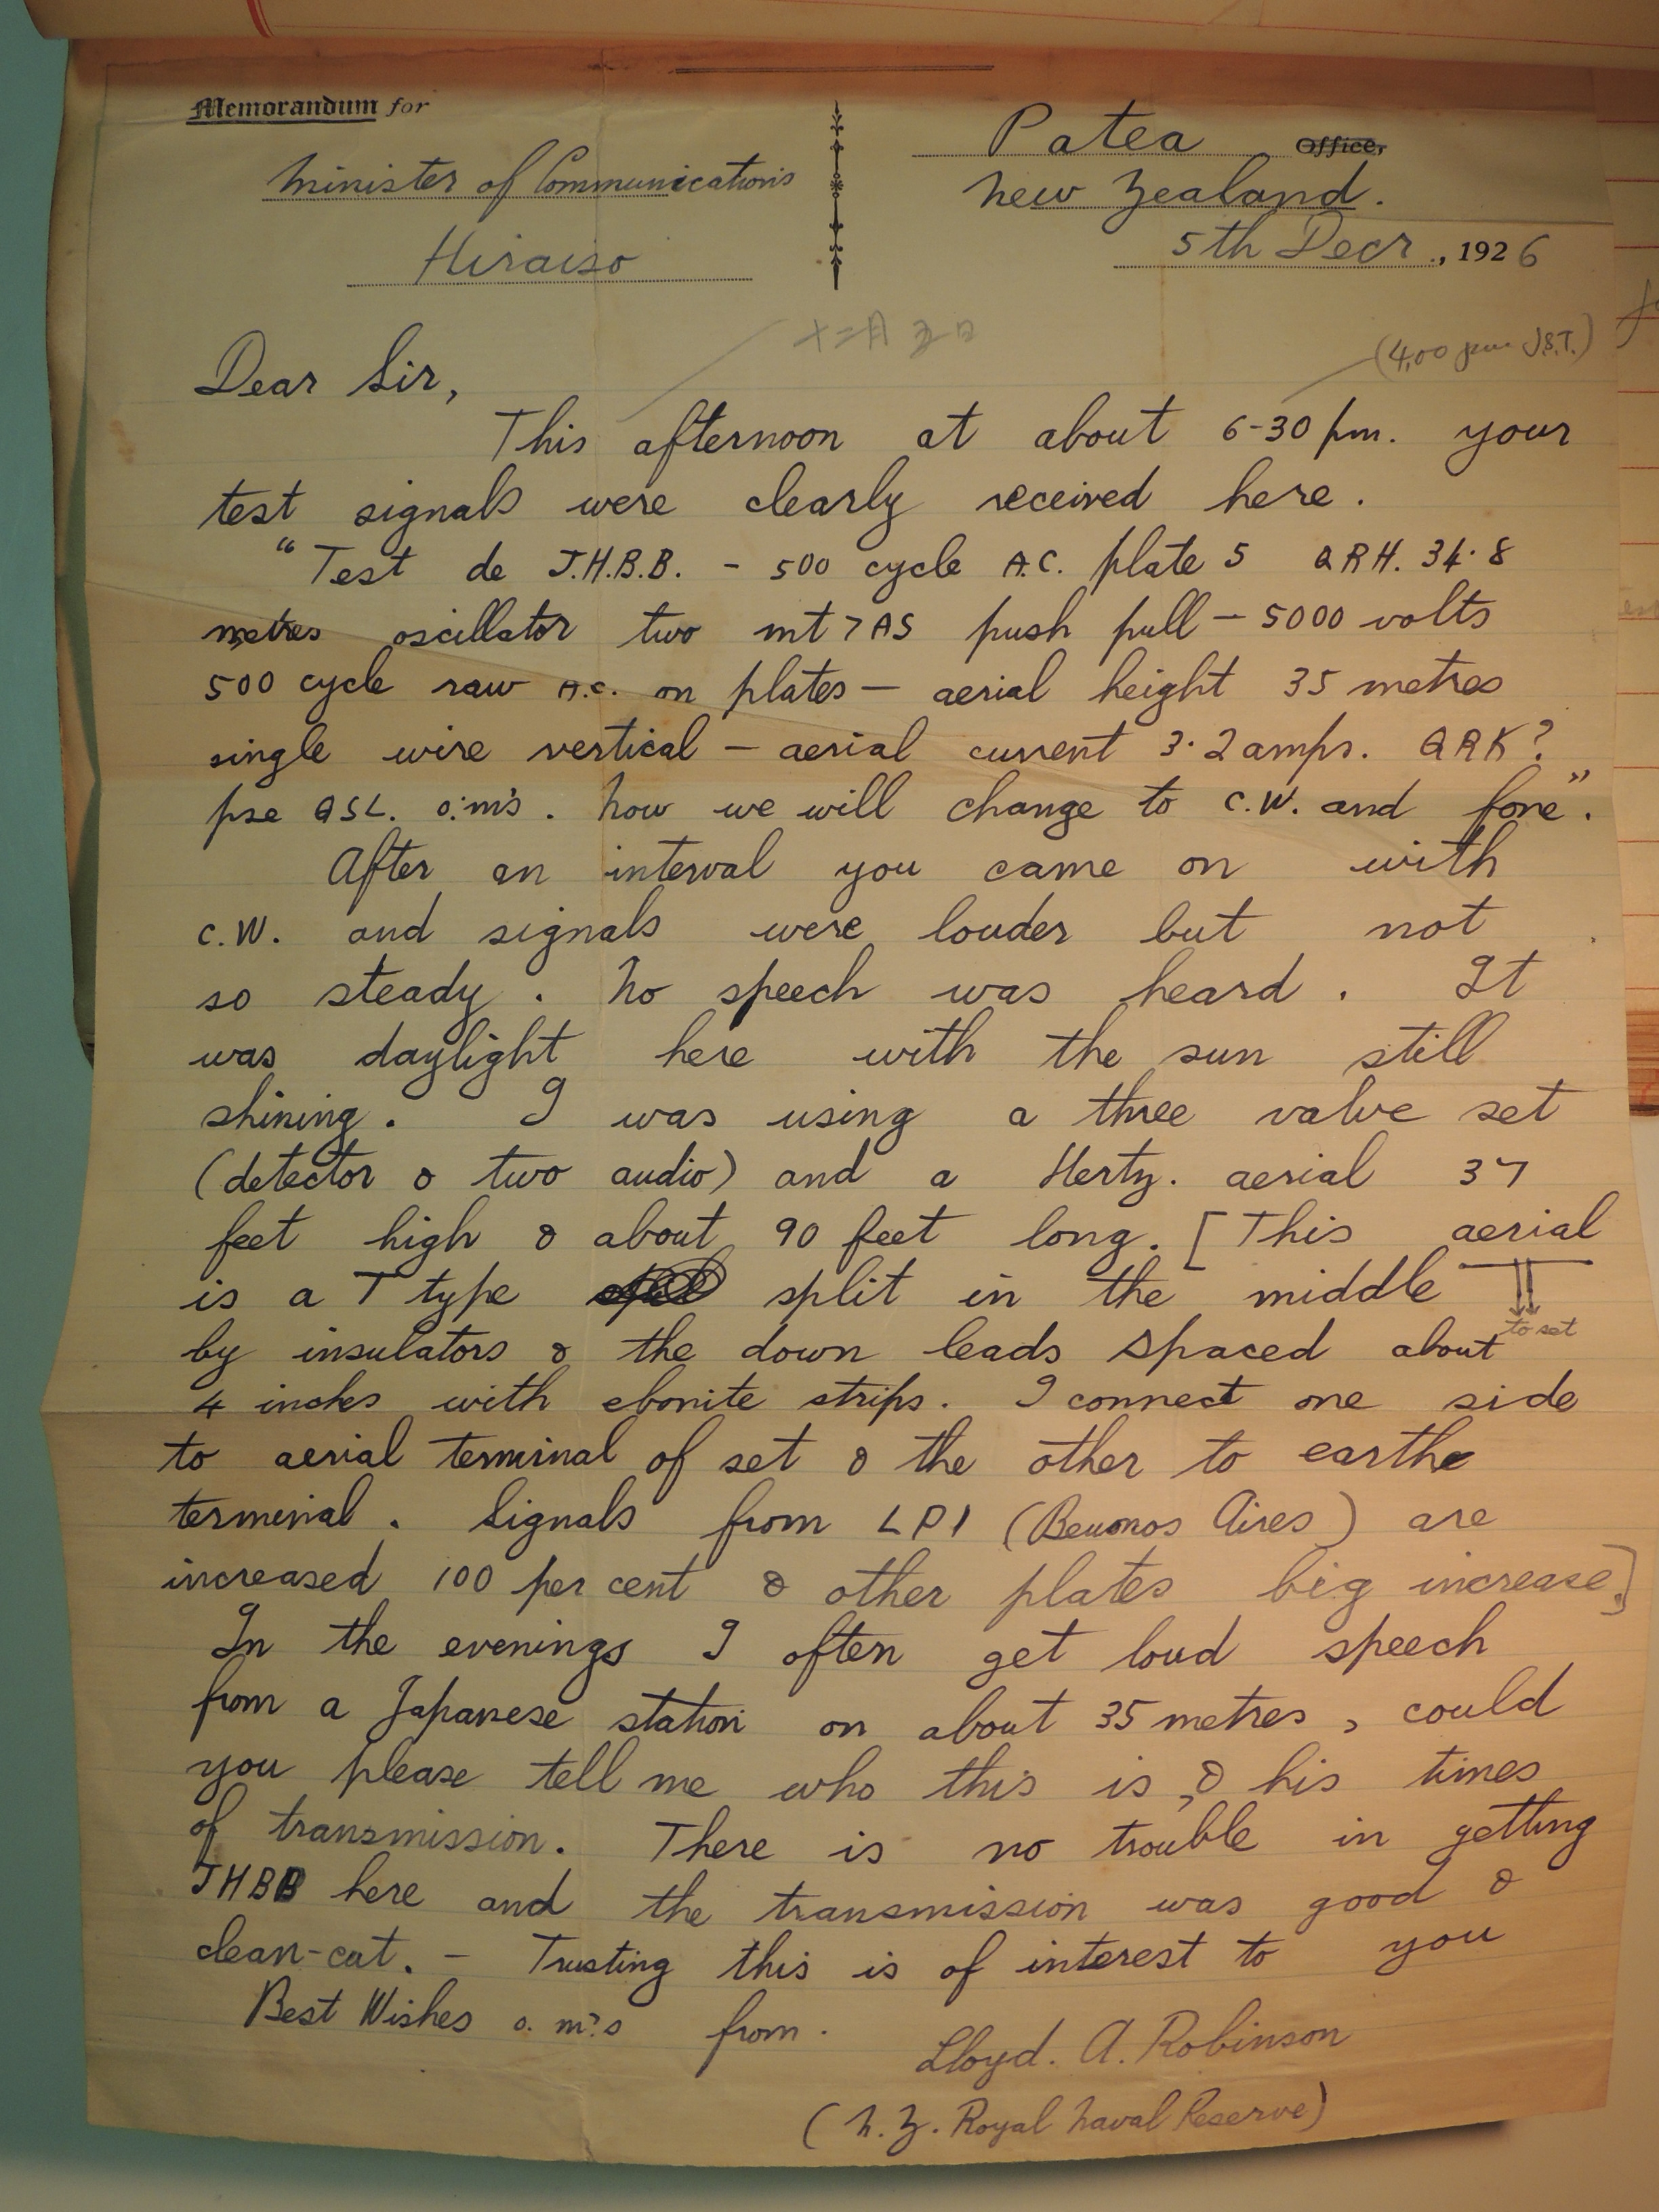 Memorandum for
Minister of Communications
Hiraiso
Patea Office,
New Zealand.
5th Decr., 1926
十二月 五日
(4.00 pm J.S.T.)
Dear Sir,
This afternoon at about 6-30 pm. your
test signals were clearly received here.
"Test de J.H.B.B. - 500 cycle A.C. plate 5 QRH. 34.8
metres oscillator two mt7AS push pull - 5000 volts
500 cycle raw A.C. on plates - aerial height 35 metres
single wire vertical - aerial current 3.2 amps. QRK?
pse QSL. o.m's. Now we will change to C.W. and fone".
After an interval you came on with
C.W. and signals were louder but not
so steady. No speech was heard. It
was daylight here with the sun still
shining. I was using a three valve set
(detector & two audio) and a Hertz. aerial 37
feet high & about 90 feet long. [This aerial
is a T type split in the middle
to set
by insulators & the down leads spaced about
4 inches with ebonite strips. I connect one side
to aerial terminal of set & the other to earth
terminal. Signals from LP1 (Beunos Aires) are
increased 100 per cent & other plates big increase.]
In the evenings I often get loud speech
from a Japanese station on about 35 metres, could
you please tell me who this is, & his times
of transmission. There is no trouble in getting
JHBB here and the transmission was good &
clean-cut. - Trusting this is of interest to you
Best Wishes o.m's from.
Lloyd. A. Robinson
(N.Z. Royal Naval Reserve)